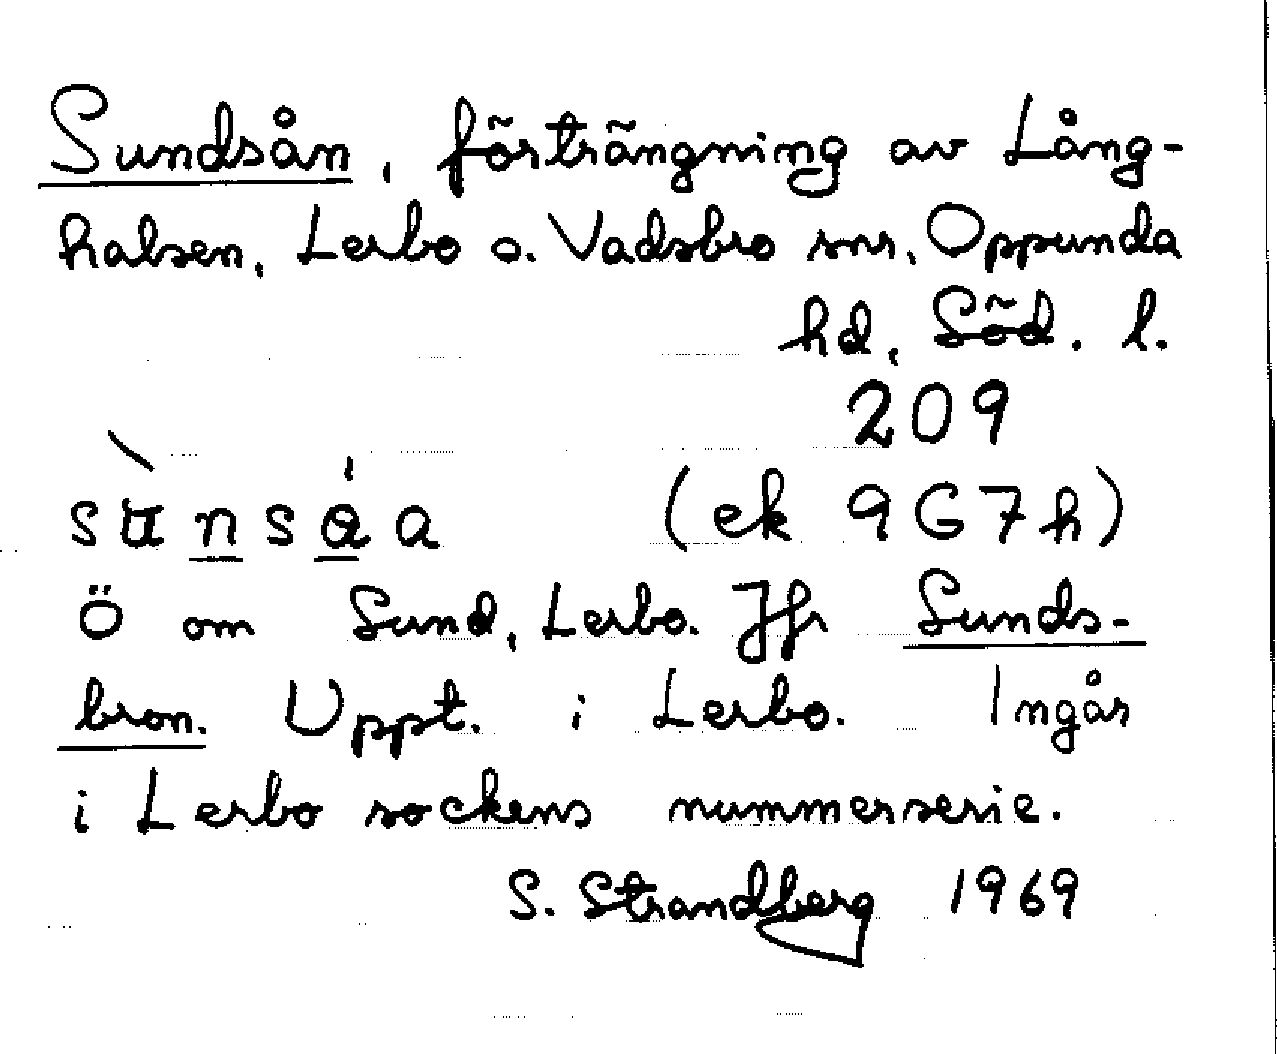 Sundsån, förträngning av Lång-
halsen, Lerbo o. Vadsbro snr, Oppunda
hd, Söd. l.
209
(ek 9G7h)
Ö om Sund, Lerbo. Jfr Sunds-
bron. Uppt. i Lerbo. Ingår
i Lerbo sockens nummerserie.
S. Strandberg 1969